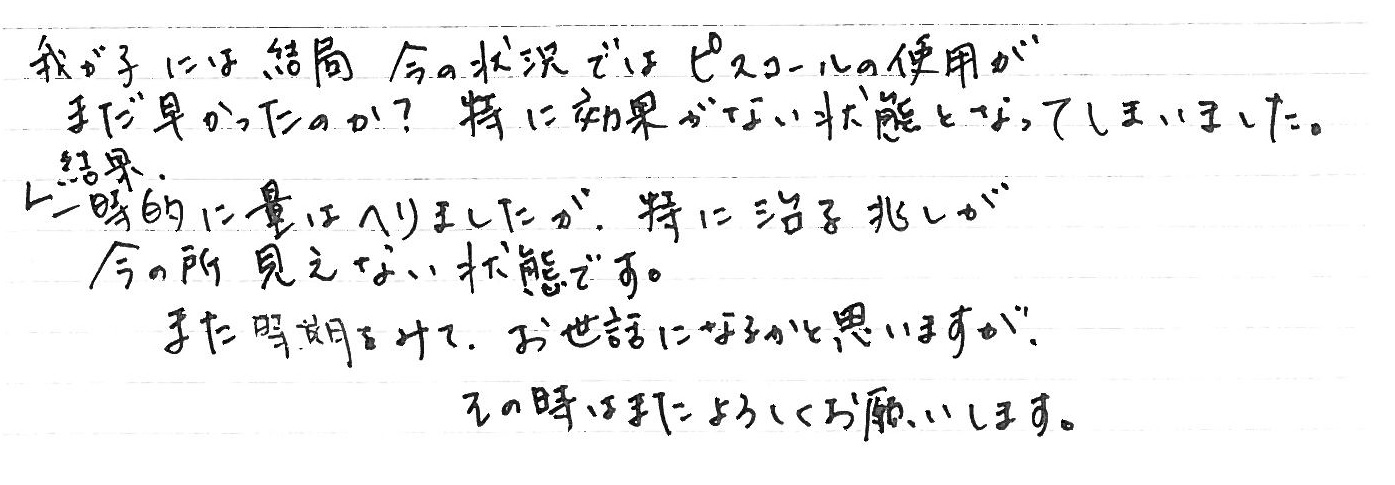 我が子には結局 今の状況ではピスコールの使用が
まだ早かったのか? 特に効果がない状態となってしまいました。
結果.
一時的に量はへりましたが、特に治る兆しが
今の所見えない状態です。
また時期をみて、お世話になるかと思いますが、
その時はまたよろしくお願いします。